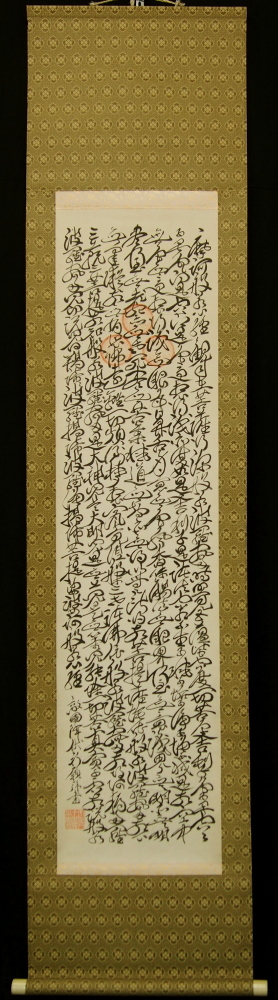 摩訶般若心経 観自在菩薩行深般若波羅蜜多時照見五蘊皆空度一切苦厄舎利子色不異空空不異
色色即是空空即是色受想行識亦復如是舎利子是諸法空相不生不滅不垢不浄不増不減是故空中
無色無受想行識無眼耳鼻舌身意無色声香味触法無眼界乃至無意識界無無明亦無無明
尽乃至無老死亦無老死尽無苦集滅道無智亦無得以無所得故菩提薩埵依般若波羅蜜多故心
無罣礙無罣礙故無有恐怖遠離一切顛倒夢想究竟涅槃三世諸仏依般若波羅蜜多故得阿耨多羅
三藐三菩提故知般若波羅蜜多是大神呪是大明呪是無上呪是無等等呪能除一切苦真実不虚故説般若
波羅蜜多呪即説呪曰羯諦羯諦波羅羯諦波羅僧羯諦菩提薩婆訶般若心経